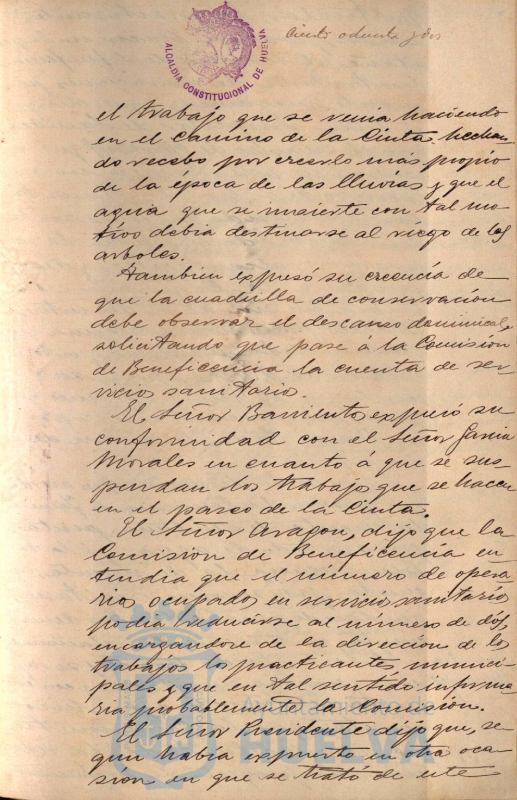 ALCALDIA CONSTITUCIONAL DE HUELVA
Ciento ochenta y dos
el trabajo que se venia haciendo
en el camino de la Cinta, hechan
do recebo por creerlo mas propio
de la época de las lluvias y que el
agua que se invierte con tal mo
tivo debia destinarse al riego de los
arboles.
Tambien expresó su creencia de
que la cuadrilla de conservación
debe observar el descanso dominical,
solicitando que pase á la Comisión
de Beneficencia la cuenta de ser
vicios sanitario.
El Señor Barriento expresó su
conformidad con el Señor Garcia
Morales en cuanto á que se sus
pendan los trabajo que se hacen
en el paseo de la Cinta.
El Señor Aragon, dijo que la
Comision de Beneficencia en
tendia que el número de opera
rios ocupados en servicio sanitario
podia reducirse al número de dos,
encargandose de la direccion de los
trabajos los practicantes munici
pales y que en tal sentido informa
ria probablemente la Comision.
El Señor Presidente dijo que, se
gun habia expuesto en otra oca
sion en que se trató de este
HUELVA